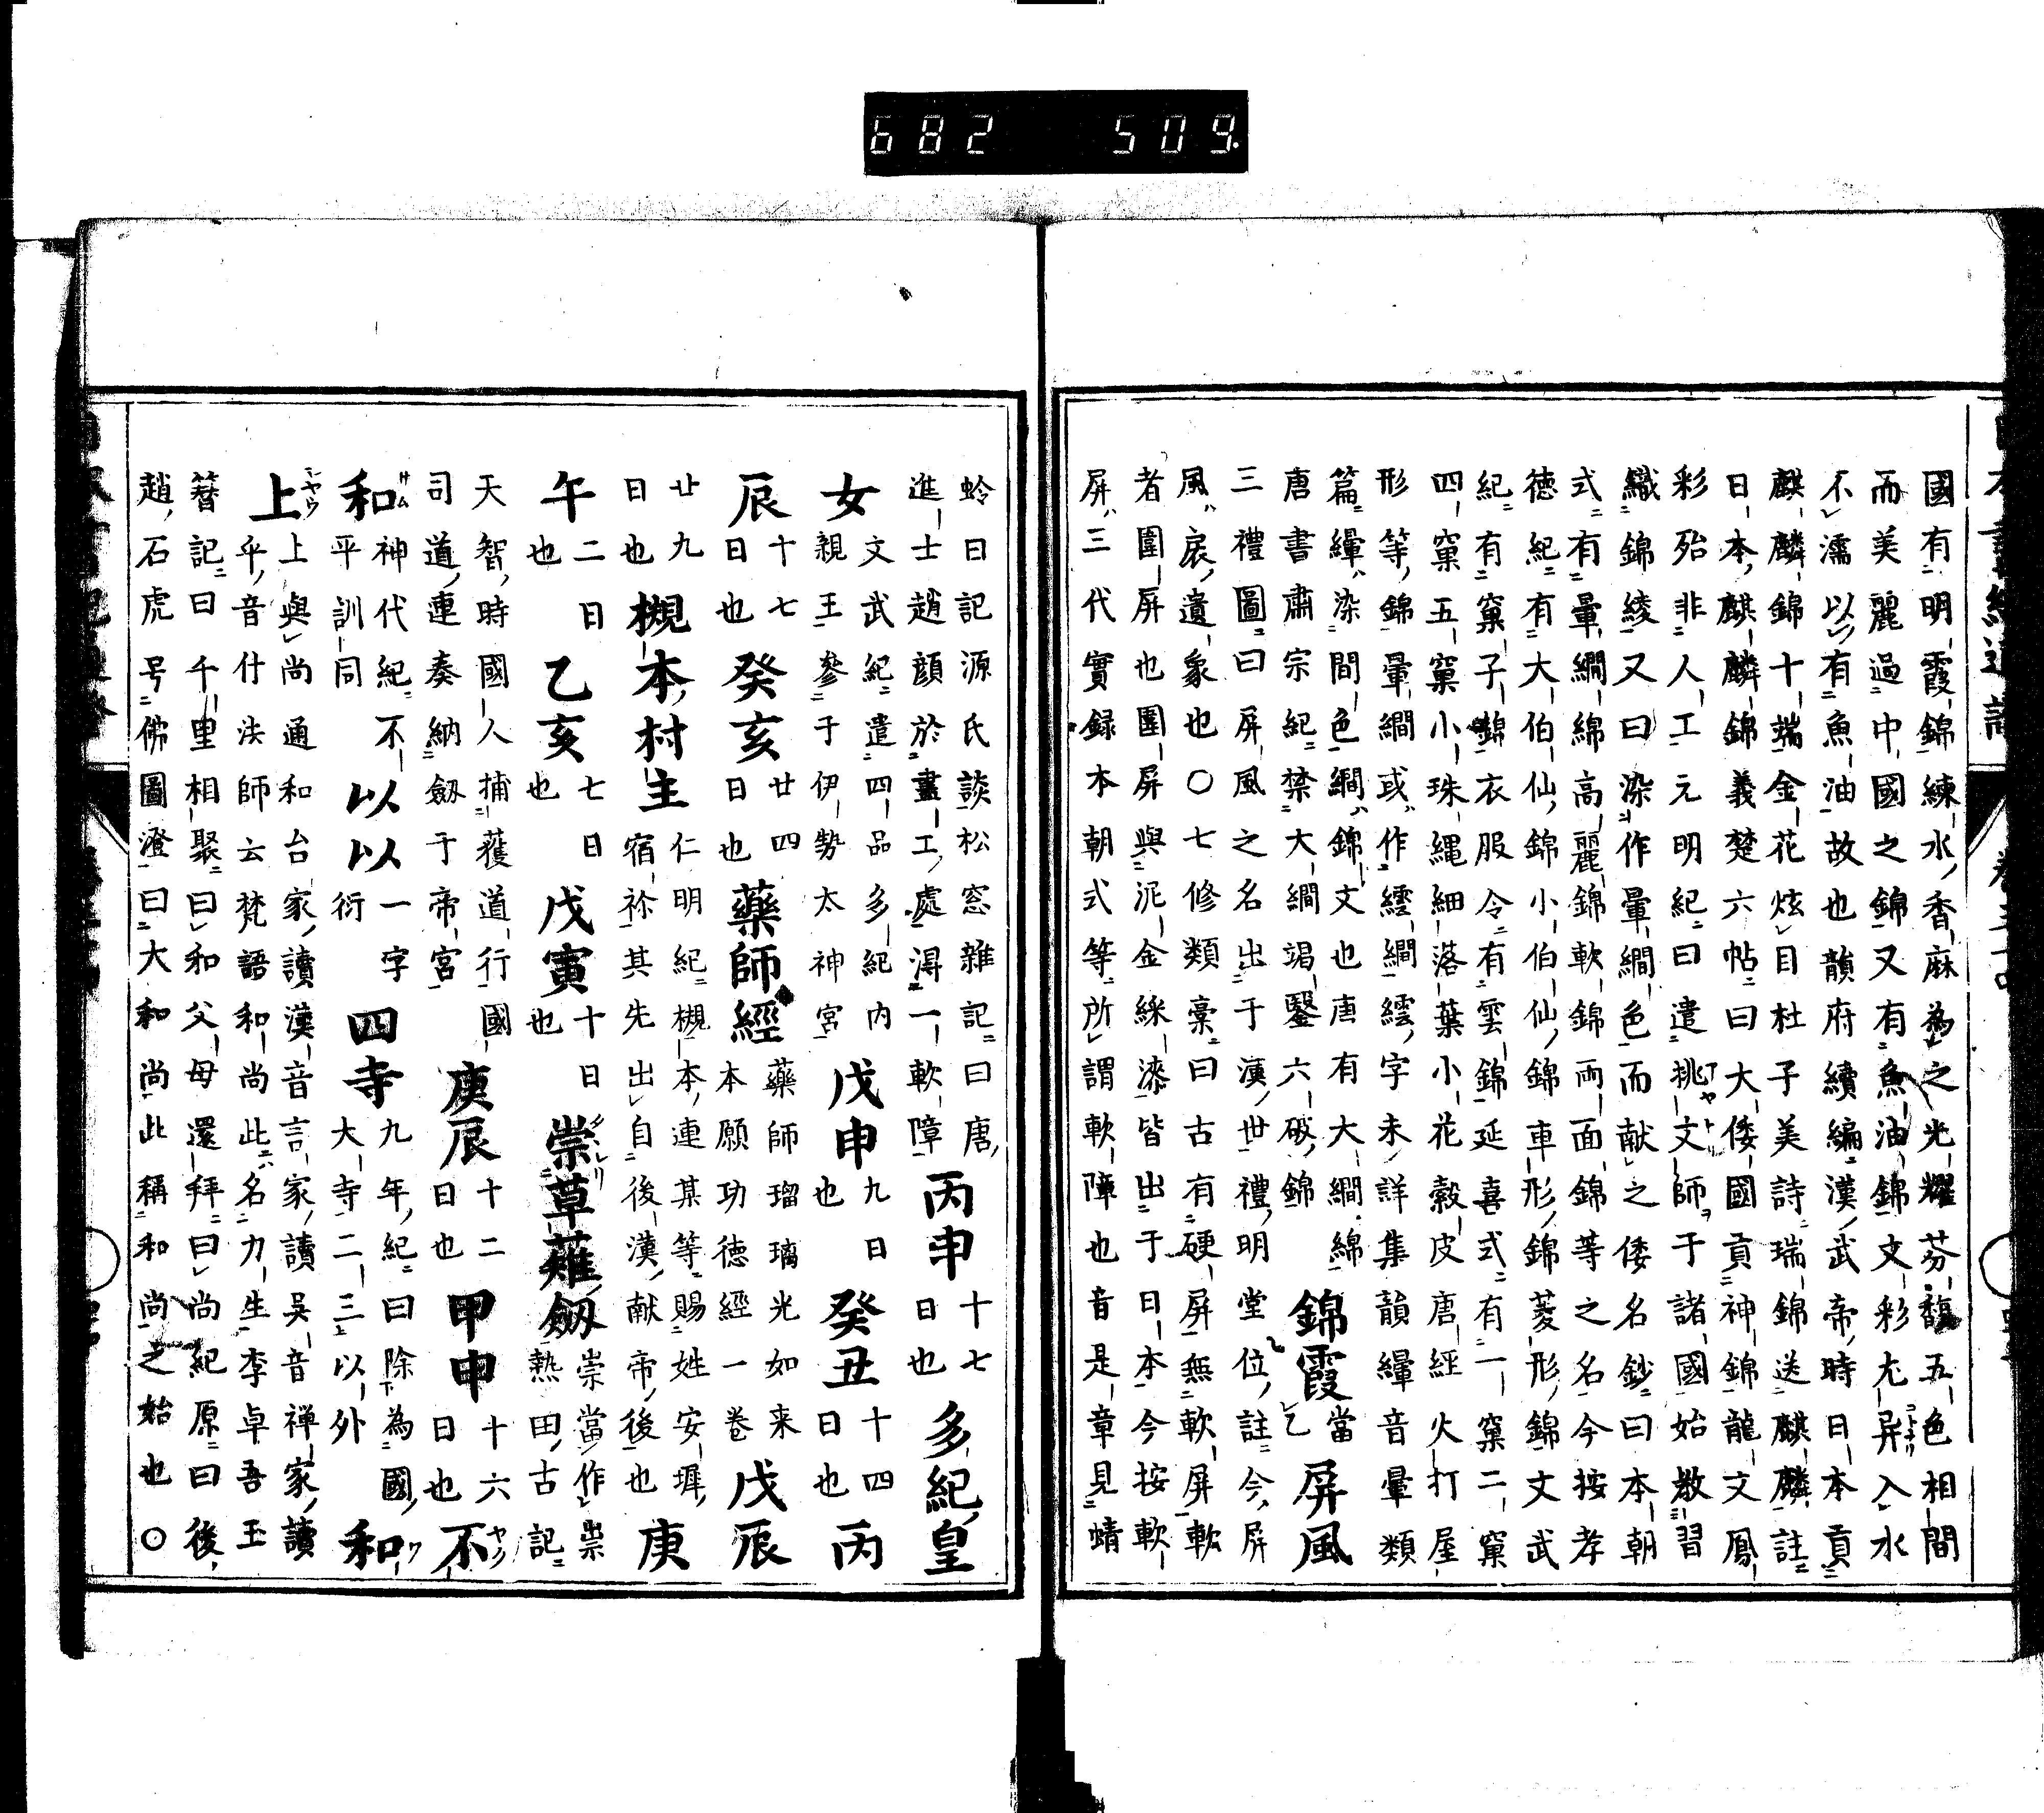 682 509.
國有明霞錦練水香麻為之光耀芬馥五色相間
而美麗過中國之錦又有魚油錦文彩尤异入水
不濡以有魚油故也韻府續編漢武帝時日本貢
麒麟錦十端金花炫目杜子美詩瑞錦送麒麟註
日本麒麟錦義楚六帖曰大倭國貢神錦龍文鳳
彩殆非人工元明紀曰遣挑文師于諸國始教習
織錦綾又曰染作暈繝色而献之倭名鈔曰本朝
式有暈繝綿高麗錦軟錦兩面錦等之名今按孝
徳紀有大伯仙錦小伯仙錦車形錦菱形錦文武
紀有窠子錦衣服令有雲錦延喜式有一窠二窠
四窠五窠小珠縄細落葉小花縠皮唐經火打屋
形等錦暈繝或作繧繝繧字未詳集韻緷音暈類
篇緷染間色繝錦文也唐有大繝綿
唐書肅宗紀禁大繝竭鑿六破錦
錦霞
乙當
屏風
三禮圖曰屏風之名出于漢世禮明堂位註今屏
風扆遺象也○七修類稾曰古有硬屏無軟屏軟
者圍屏也圍屏與泥金綵漆皆出于日本今按軟
屏三代實録本朝式等所謂軟障也音是章見蜻
蛉日記源氏談松窓雜記曰唐
進士趙顔於畫工處淂一軟障
丙申
十七
日也
多紀皇
女
文武紀遣四品多紀内
親王參于伊勢太神宮
戊申
九日
也
癸丑
十四
日也
丙
辰
十七
日也
癸亥
廿四
日也
藥師經
藥師瑠璃光如来
本願功徳經一卷
戊辰
廿九
日也
槻本村主
仁明紀槻本連某等賜姓安墀
宿祢其先出自後漢献帝後也
庚
午
二日
也
乙亥
七日
也
戊寅
十日
也
崇草薙劔
崇當作祟
熱田古記
天智時國人捕獲道行國
司道連奏納劔于帝宮
庚辰
十二
日也
甲申
十六
日也
不
和
神代紀不
平訓同
以以
一字
衍
四寺
九年紀曰除為國
大寺二三以外
和
上
上與尚通和台家讀漢音言家讀吳音禅家讀
乎音什法師云梵語和尚此名力生李卓吾玉
簪記曰千里相聚曰和父母還拜曰尚紀原曰後
趙石虎号佛圖澄曰大和尚此稱和尚之始也○